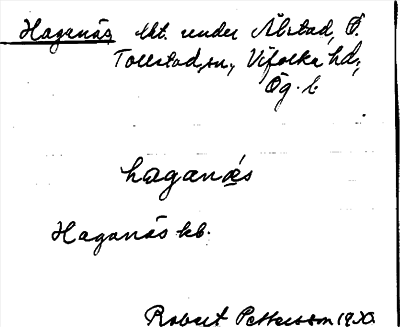 Haganäs lht. under Ålstad, Ö.
Tollstad sn, Vifolka hd,
Ög. l.
haganäs
Haganäs kb.
Robert Pettersson 1930